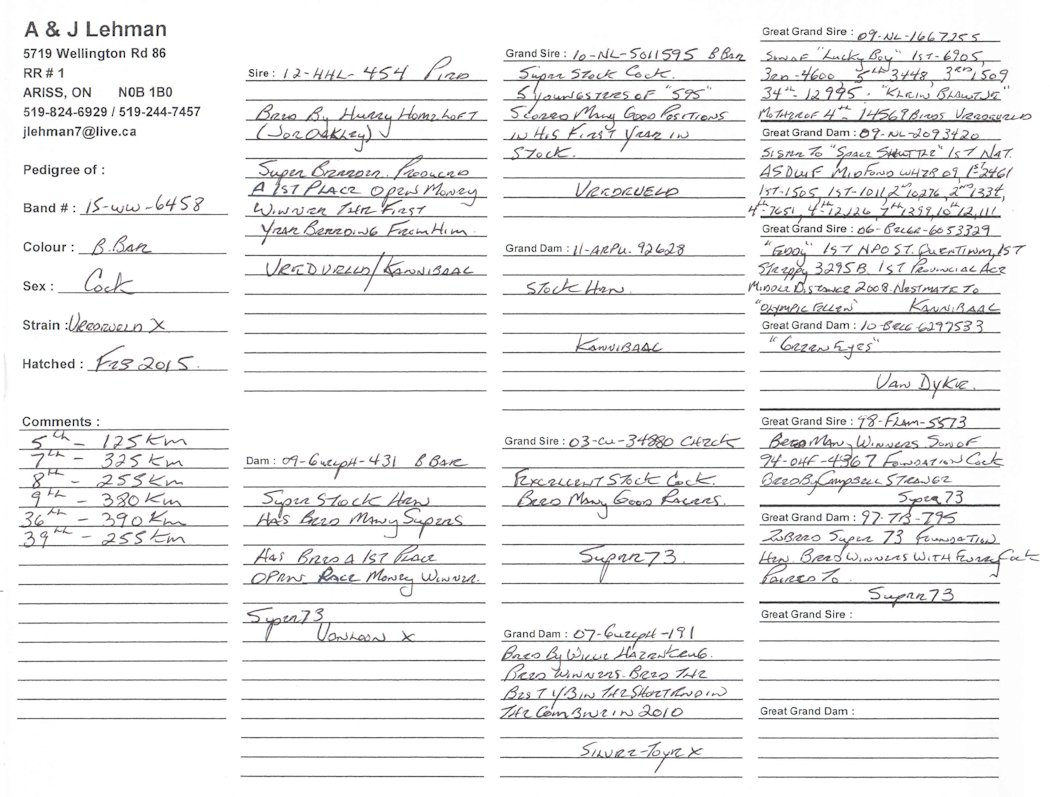 A & J Lehman
5719 Wellington Rd 86
RR # 1
ARISS, ON N0B 1B0
519-824-6929 / 519-244-7457
jlehman7@live.ca
Pedigree of :
Band # : 15-WW-6458
Colour : B.Bar
Sex : Cock
Strain : Vredeveld X
Hatched : Feb 2015.
Comments :
5th - 125Km
7th - 325Km
8th - 255Km
9th - 380Km
36th - 390Km
39th - 255Km
Sire : 12-HHL-454 Pied
Bred By Hurry Home Loft
(Joe Oakley)
Super Breeder. Produced
A 1st Place Open Money
Winner The First
Year Breeding From Him.
Vredeveld/Kannibaal
Dam : 09-Guelph-431 B Bar
Super Stock Hen
Has Bred Many Supers
Has Bred A 1st Place
Open Race Money Winner.
Super 73
Vanloon X
Grand Sire : 10-NL-5011595 B Bar
Super Stock Cock.
5 Youngsters of "595"
Scored Many Good Positions
in His First Year in
Stock.
Vredeveld
Grand Dam : 11-ARPU-92628
Stock Hen.
Kannibaal
Grand Sire : 03-CU-34880 Check
Excellent Stock Cock.
Bred Many Good Racers.
Super 73
Grand Dam : 07-Guelph-191
Bred By Willie Hazenkrug.
Bred Winners. Bred The
Best YB in The Short End in
The Combine in 2010
Silvere-Toye X
Great Grand Sire : 09-NL-1667255
Son of "Lucky Boy" 1st-6705,
3rd-4600, 5th 3448, 3rd 1509
34th-12995. "Klein Blauwtje"
Mother of 4th-14569 Birds Vredeveld
Great Grand Dam : 09-NL-2093420
Sister To "Space Shuttle" 1st Nat.
Ace DWF Midfond WHZB 09, 1st-2461
1st-1505, 1st-1011, 2nd 10276, 2nd 1334,
4th-7651, 4th-12,126, 7th 1399, 10th 12,111
Great Grand Sire : 06-Belg-6053329
"Eddy" 1st NPO St. Quentin, 1st
Streppy 3295B. 1st Provincial Ace
Middle Distance 2008. Nestmate To
"Olympic Ellen" Kannibaal
Great Grand Dam : 10-Belg-6297533
"Green Eyes"
Van Dyke.
Great Grand Sire : 98-Flam-5573
Bred Many Winners Son of
94-OHF-4367 Foundation Cock
Bred By Campbell Strange
Super 73
Great Grand Dam : 97-TB-795
Inbred Super 73 Foundation
Hen Bred Winners With Every Cock
Paired To.
Super 73
Great Grand Sire :
Great Grand Dam :